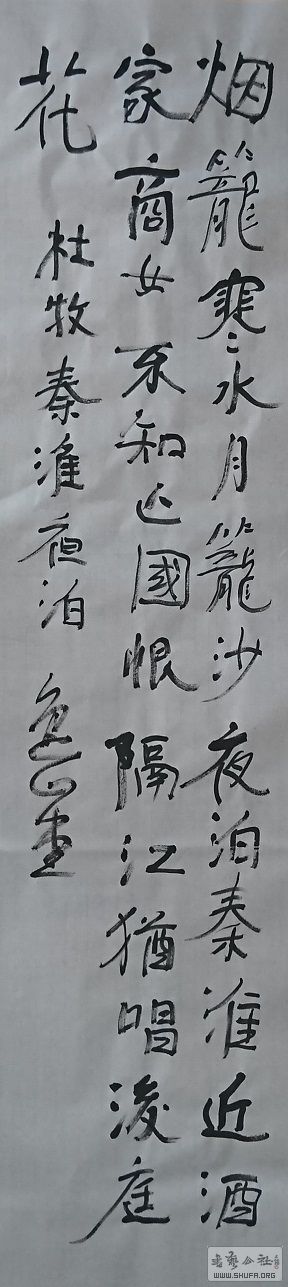 烟籠寒水月籠沙夜泊秦淮近酒
家商女不知亡國恨隔江猶唱後庭
花
杜牧秦淮夜泊
WWW.SHUFA.ORG